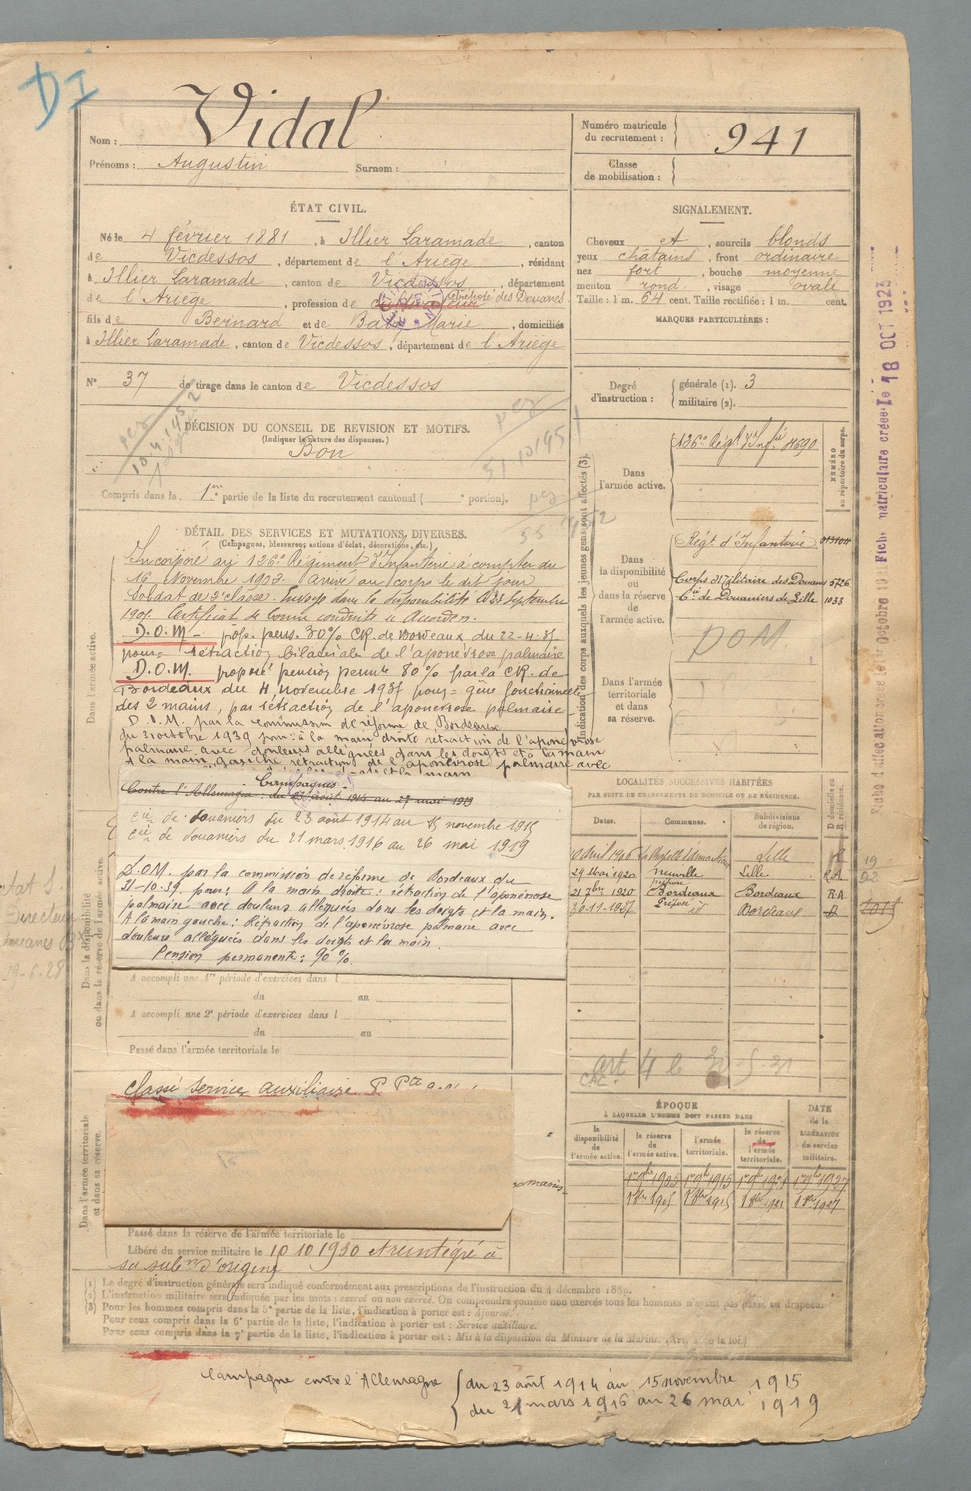 DI
Nom : Vidal
Prénoms : Augustin Surnom :
Numéro matricule du recrutement : 941
Classe de mobilisation :
ÉTAT CIVIL.
Né le 4 février 1881, à Illier Laramade, canton
de Vicdessos, département de l'Ariège, résidant
à Illier Laramade, canton de Vicdessos, département
de l'Ariège, profession de retraité des Douanes
fils de Bernard et de Marie, domiciliés
à Illier Laramade, canton de Vicdessos, département de l'Ariège
N° 37 de tirage dans le canton de Vicdessos
SIGNALEMENT.
Cheveux et, sourcils blonds
yeux châtains, front ordinaire
nez fort, bouche moyenne
menton rond, visage ovale
Taille : 1 m. 64 cent. Taille rectifiée : 1 m. cent.
MARQUES PARTICULIÈRES :
Degré d'instruction : générale (1). 3
militaire (2).
DÉCISION DU CONSEIL DE REVISION ET MOTIFS.
(Indiquer la nature des dispenses.)
Bon
Compris dans la 1re partie de la liste du recrutement cantonal ( portion).
DÉTAIL DES SERVICES ET MUTATIONS DIVERSES.
(Campagnes, blessures, actions d'éclat, décorations, etc.)
Incorporé au 126e Régiment d'Infanterie à compter du
16 Novembre 1902. Arrivé au corps le dit jour
Soldat de 2e classe. Envoyé dans la disponibilité le 23 Septembre
Certificat de bonne conduite « Accordé ».
D.O.M. prop. pens. 30% CR de Bordeaux du 22-4-37
pour rétraction bilatérale de l'aponévrose palmaire
D.O.M. proposé pension permte 80% par la CR. de
Bordeaux du 4 novembre 1937 pour = gêne fonctionnelle
des 2 mains, par rétraction de l'aponévrose palmaire
D.O.M. par la commission de réforme de Bordeaux
du 21 octobre 1939 pour : à la main droite rétraction de l'aponévrose
palmaire avec douleurs alléguées dans les doigts et la main
A la main gauche rétraction de l'aponévrose palmaire avec
Campagnes.
Contre l'Allemagne : du 23 août 1914 au 27 mai 1919
cie de douaniers du 23 août 1914 au 15 novembre 1915
cie de douaniers du 21 mars 1916 au 26 mai 1919
D.O.M. par la commission de réforme de Bordeaux du
21-10-39. pour : A la main droite : rétraction de l'aponévrose
palmaire avec douleurs alléguées dans les doigts et la main.
A la main gauche : Rétraction de l'aponévrose palmaire avec
douleurs alléguées dans les doigts et la main
Pension permanente : 90 %.
A accompli une 1re période d'exercices dans l
du au
A accompli une 2e période d'exercices dans l
du au
Passé dans l'armée territoriale le
Classé Service auxiliaire
Passé dans la réserve de l'armée territoriale le
Libéré du service militaire le 10 10 1930 et réintégré à
sa subon d'origine
Dans l'armée active.
Dans la disponibilité
ou dans la réserve de l'armée active.
Dans l'armée territoriale
et dans sa réserve.
Indication des corps auxquels les jeunes gens sont affectés (3).
NUMÉRO
au répertoire du corps.
Dans l'armée active.
126e Régt d'Infie 8690
Dans la disponibilité ou dans la réserve de l'armée active.
Régt d'Infanterie
Corps Militaire des Douanes 5726
Cie de Douaniers de Lille 1033
DOM
Dans l'armée territoriale et dans sa réserve.
LOCALITÉS SUCCESSIVES HABITÉES
PAR SUITE DE CHANGEMENTS DE DOMICILE OU DE RÉSIDENCE.
Dates. Communes. Subdivisions de région. D domicile ou R résidence.
Lille
29 Mai 1920 Neuville Lille R.A
21 7bre 1920 Bordeaux Bordeaux R.A
30-11-1937 d° Bordeaux D
art 4 le
ÉPOQUE
À LAQUELLE L'HOMME DOIT PASSER DANS
la disponibilité de l'armée active. la réserve de l'armée active. l'armée territoriale. la réserve de l'armée territoriale.
DATE de la LIBÉRATION du service militaire.
(1) Le degré d'instruction générale sera indiqué conformément aux prescriptions de l'instruction du 4 décembre 1889.
(2) L'instruction militaire sera indiquée par les mots : exercé ou non exercé. On comprendra comme non exercés tous les hommes n'ayant pas passé au drapeau.
(3) Pour les hommes compris dans la 5e partie de la liste, l'indication à porter est : Ajourné.
Pour ceux compris dans la 6e partie de la liste, l'indication à porter est : Service auxiliaire.
Pour ceux compris dans la 7e partie de la liste, l'indication à porter est : Mis à la disposition du Ministre de la Marine.
Campagne contre l'Allemagne { du 23 août 1914 au 15 novembre 1915
du 21 mars 1916 au 26 mai 1919
matriculaire créée le 18 OCT 1923